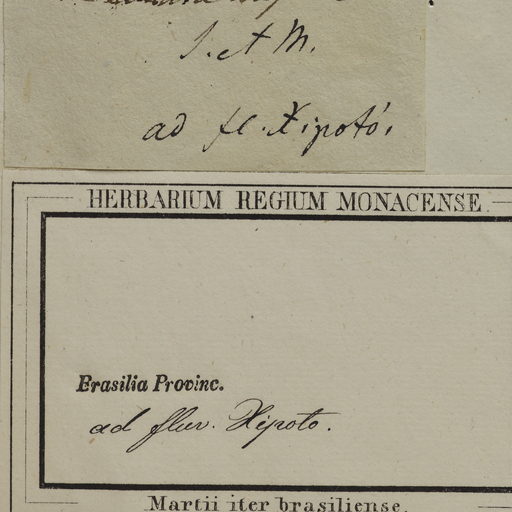 S. et M.
ad fl. Xipotó.
HERBARIUM REGIUM MONACENSE.
Brasilia Provinc.
ad fluv. Xipoto.
Martii iter brasiliense.